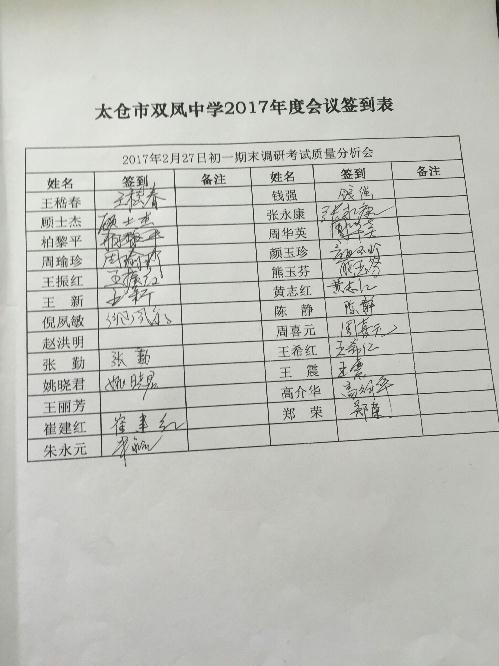 太仓市双凤中学2017年度会议签到表
2017年2月27日初一期末调研考试质量分析会
姓名 签到 备注 姓名 签到 备注
王楷春 王楷春 钱强 钱强
顾士杰 顾士杰 张永康 张永康
柏黎平 柏黎平 周华英 周华英
周瑜珍 周瑜珍 颜玉珍 颜玉珍
王振红 王振红 熊玉芬 熊玉芬
王新 王新 黄志红 黄志红
倪凤敏 倪凤敏 陈静 陈静
赵洪明 周喜元 周喜元
张勤 张勤 王希红 王希红
姚晓君 姚晓君 王震 王震
王丽芳 高介华 高介华
崔建红 崔建红 郑荣 郑荣
朱永元